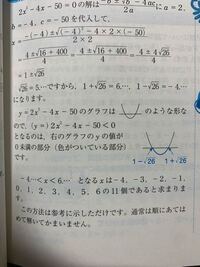 2x²－4x－50＝0の解は －b±√b²－4ac / 2a に a＝2,
b＝－4, c＝－50を代入して,
x＝ －(－4)±√(－4)²－4×2×(－50) / 2×2
＝ 4±√16＋400 / 4 ＝ 4±√16＋400 / 4 ＝ 4±4√26 / 4
＝1±√26
√26＝5.…ですから, 1＋√26＝6.…, 1－√26＝－4.…
になります。
y＝2x²－4x－50のグラフは のような形な
ので, (y＝) 2x²－4x－50＜0
となるのは, 右のグラフのyの値が
0未満の部分(色がついている部分)
です。
1－√26 1＋√26
－4.…＜x＜6.… となるxは－4, －3, －2, －1,
0, 1, 2, 3, 4, 5, 6の11個であると求まりま
す。
この方法は参考に示しただけです。通常は順にあては
めて解いてかまいません。